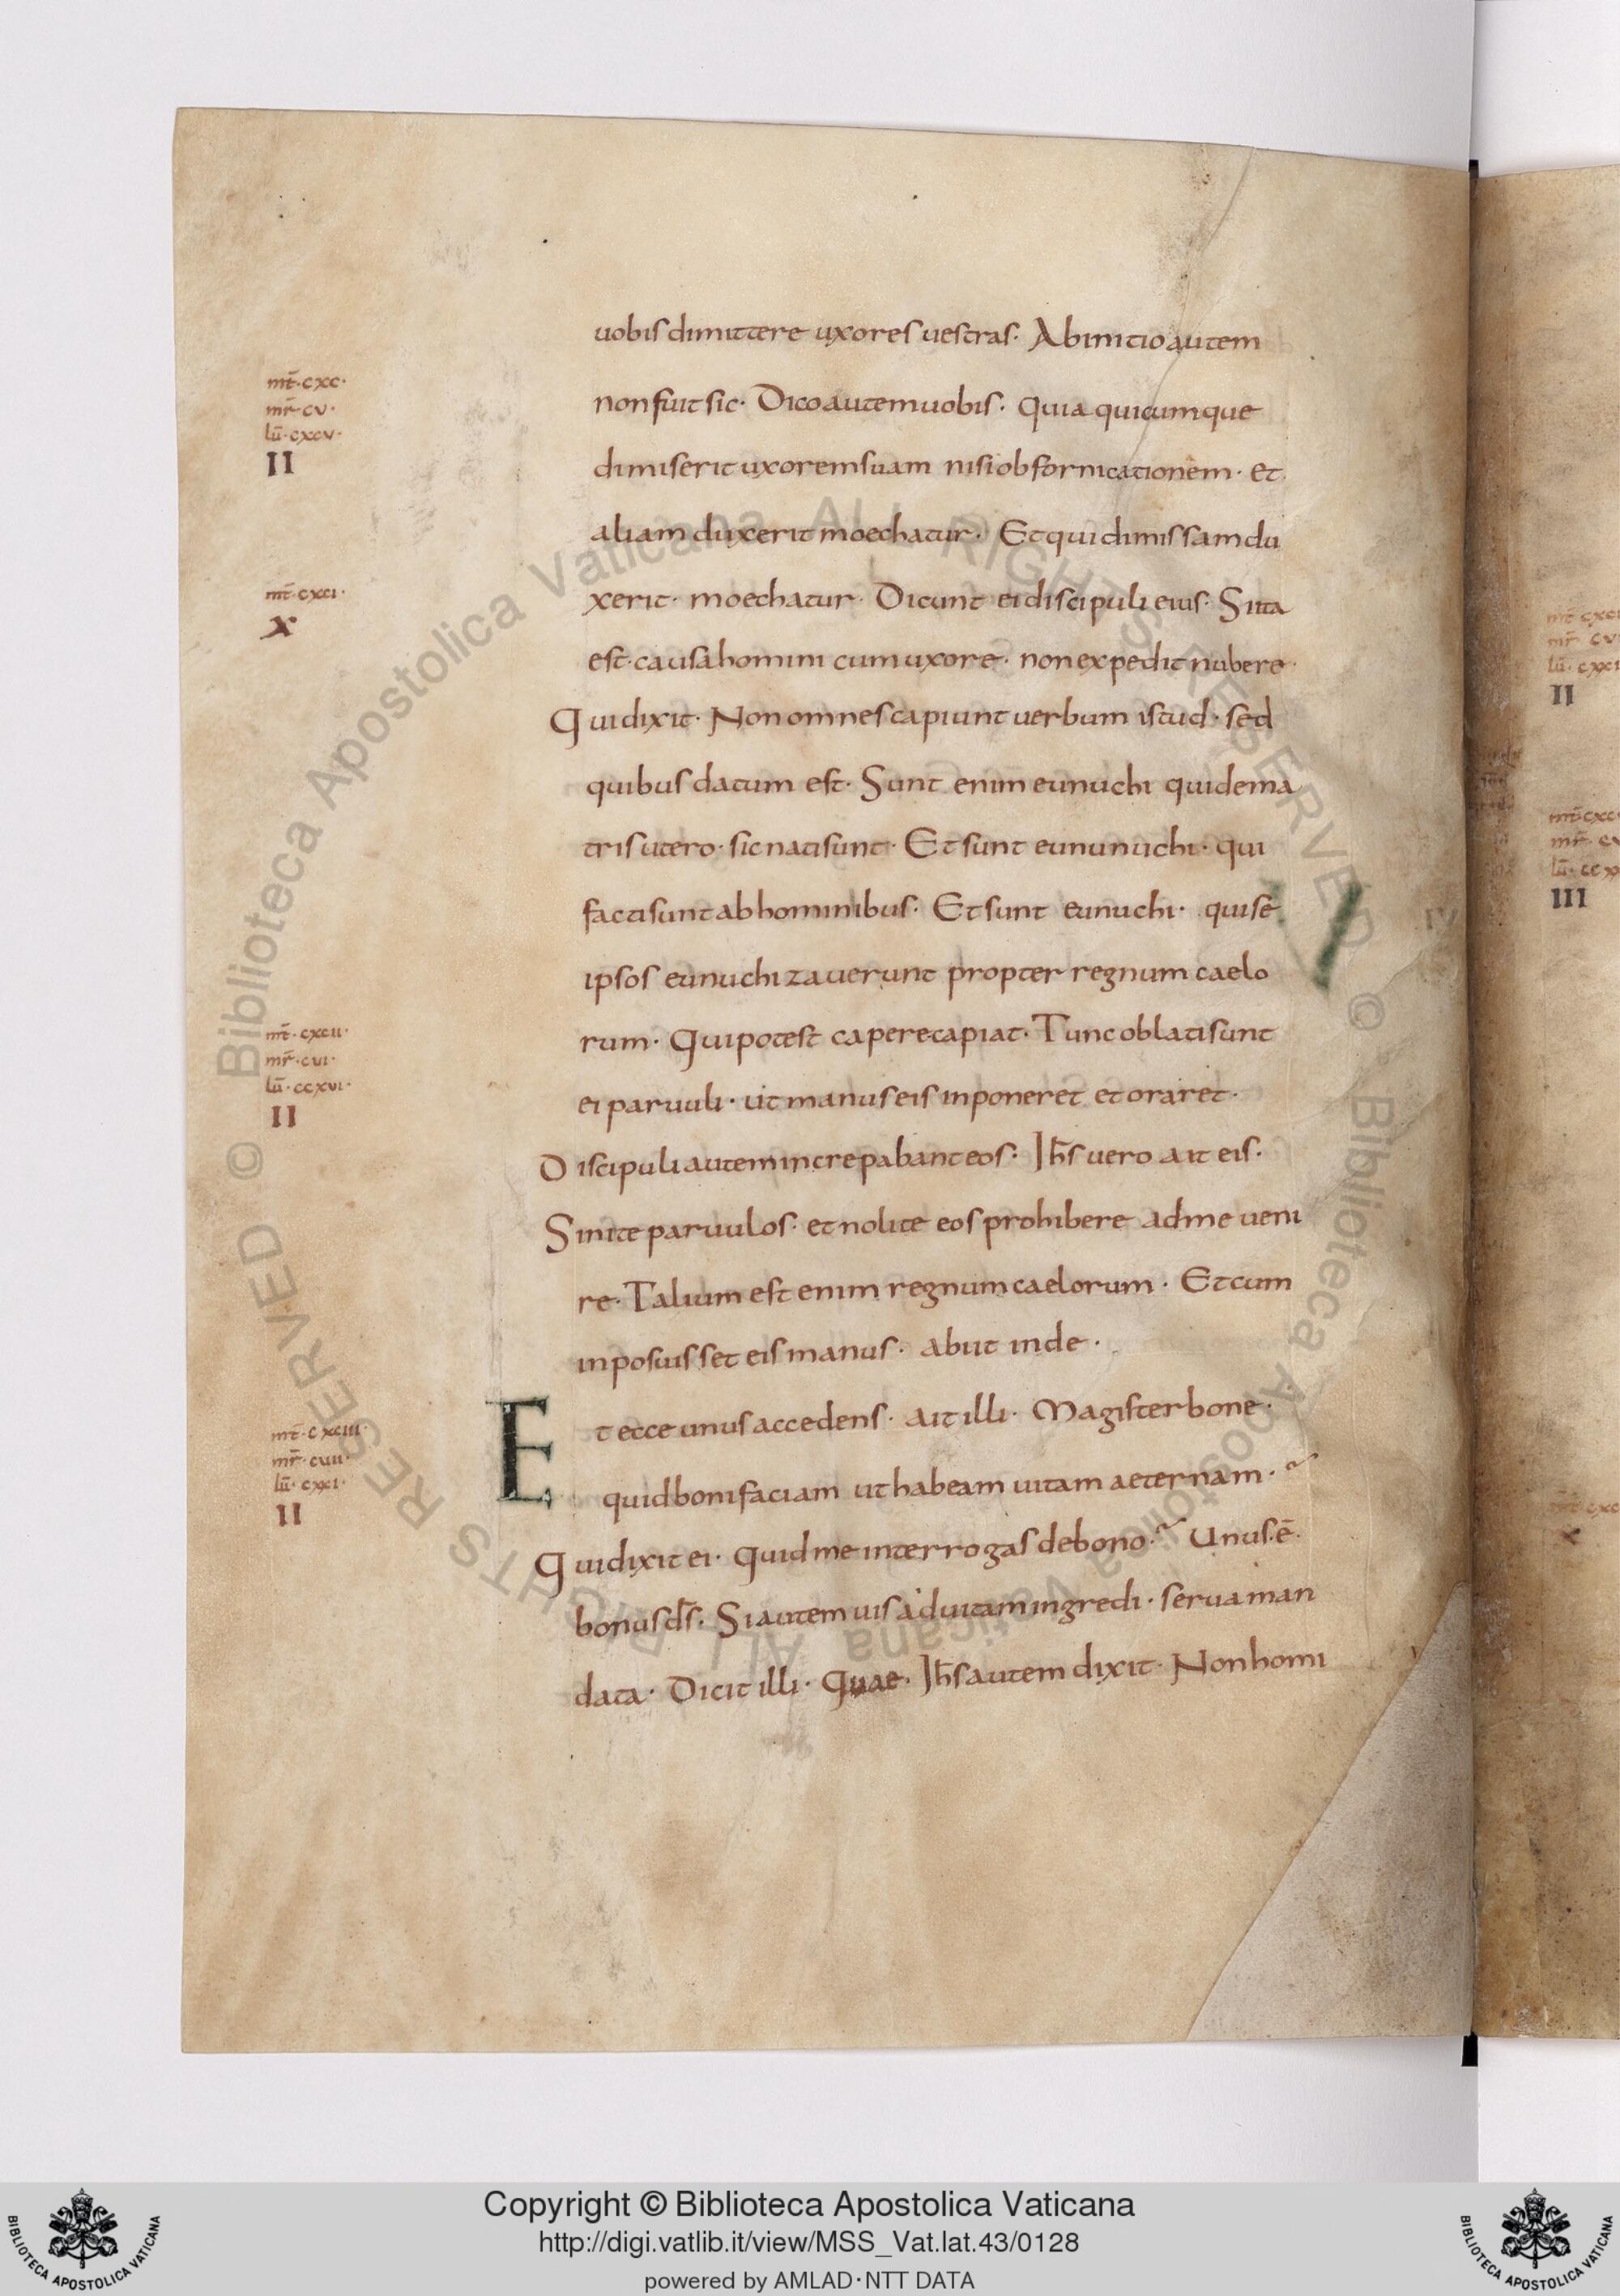 uobis dimittere uxores uestras· Ab initio autem
mt̄·cxc·
mr̄·cv·
lū·cxcv·
II
non fuit sic· Dico autem uobis· quia quicumque
dimiserit uxorem suam nisi ob fornicationem· et
aliam duxerit moechatur· Et qui dimissam du
mt̄·cxci·
X
xerit· moechatur· Dicunt ei discipuli eius· Si ita
est· causa homini cum uxore· non expedit nubere·
Qui dixit· Non omnes capiunt uerbum istud· sed
quibus datum est· Sunt enim eunuchi qui de ma
tris utero· sic nati sunt· Et sunt eununuchi· qui
facti sunt ab hominibus· Et sunt eunuchi· qui se
ipsos eunuchizauerunt propter regnum caelo
mt̄·cxcii·
mr̄·cvi·
lū·ccxvi·
II
rum· Qui potest capere capiat· Tunc oblati sunt
ei paruuli· ut manus eis inponeret et oraret·
Discipuli autem increpabant eos· Ih̄s uero ait eis·
Sinite paruulos· et nolite eos prohibere ad me ueni
re· Talium est enim regnum caelorum· Et cum
inposuisset eis manus· abiit inde·
mt̄·cxciii·
mr̄·cvii·
lū·cxxi·
II
Et ecce unus accedens· ait illi· Magister bone·
quid boni faciam ut habeam uitam aeternam·~
Qui dixit ei· quid me interrogas de bono·~ Unus·ē·
bonus d̄s· Si autem uis ad uitam ingredi· serua man
data· Dicit illi· Quae· Ih̄s autem dixit· Non homi
II
III
© Biblioteca Apostolica Vaticana ALL RIGHTS RESERVED © Biblioteca Apostolica Vaticana ALL RIGHTS RESERVED
Copyright © Biblioteca Apostolica Vaticana
http://digi.vatlib.it/view/MSS_Vat.lat.43/0128
powered by AMLAD·NTT DATA
BIBLIOTECA APOSTOLICA VATICANA
BIBLIOTECA APOSTOLICA VATICANA